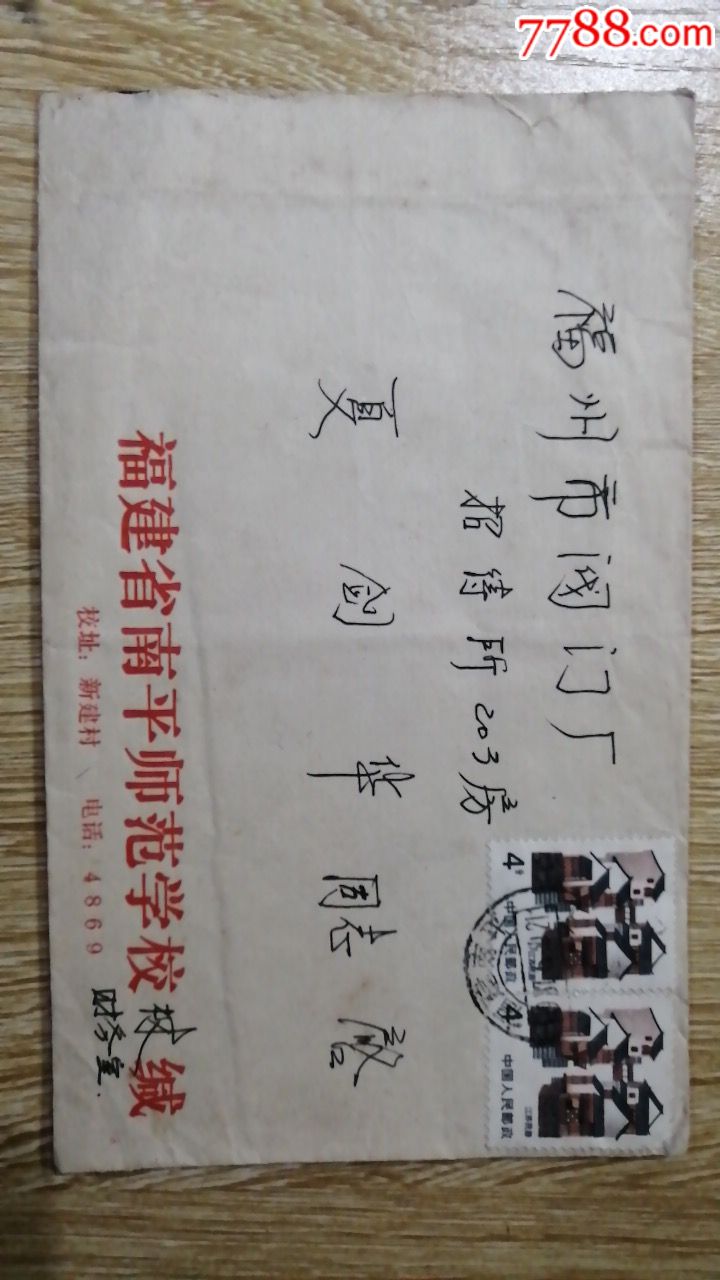 7788.com
福州市阀门厂
招待所203房
夏剑华同志启
福建省南平师范学校
财务室.
缄
校址：新建村、电话：4869
4分
中国人民邮政
4分
中国人民邮政
江苏民居